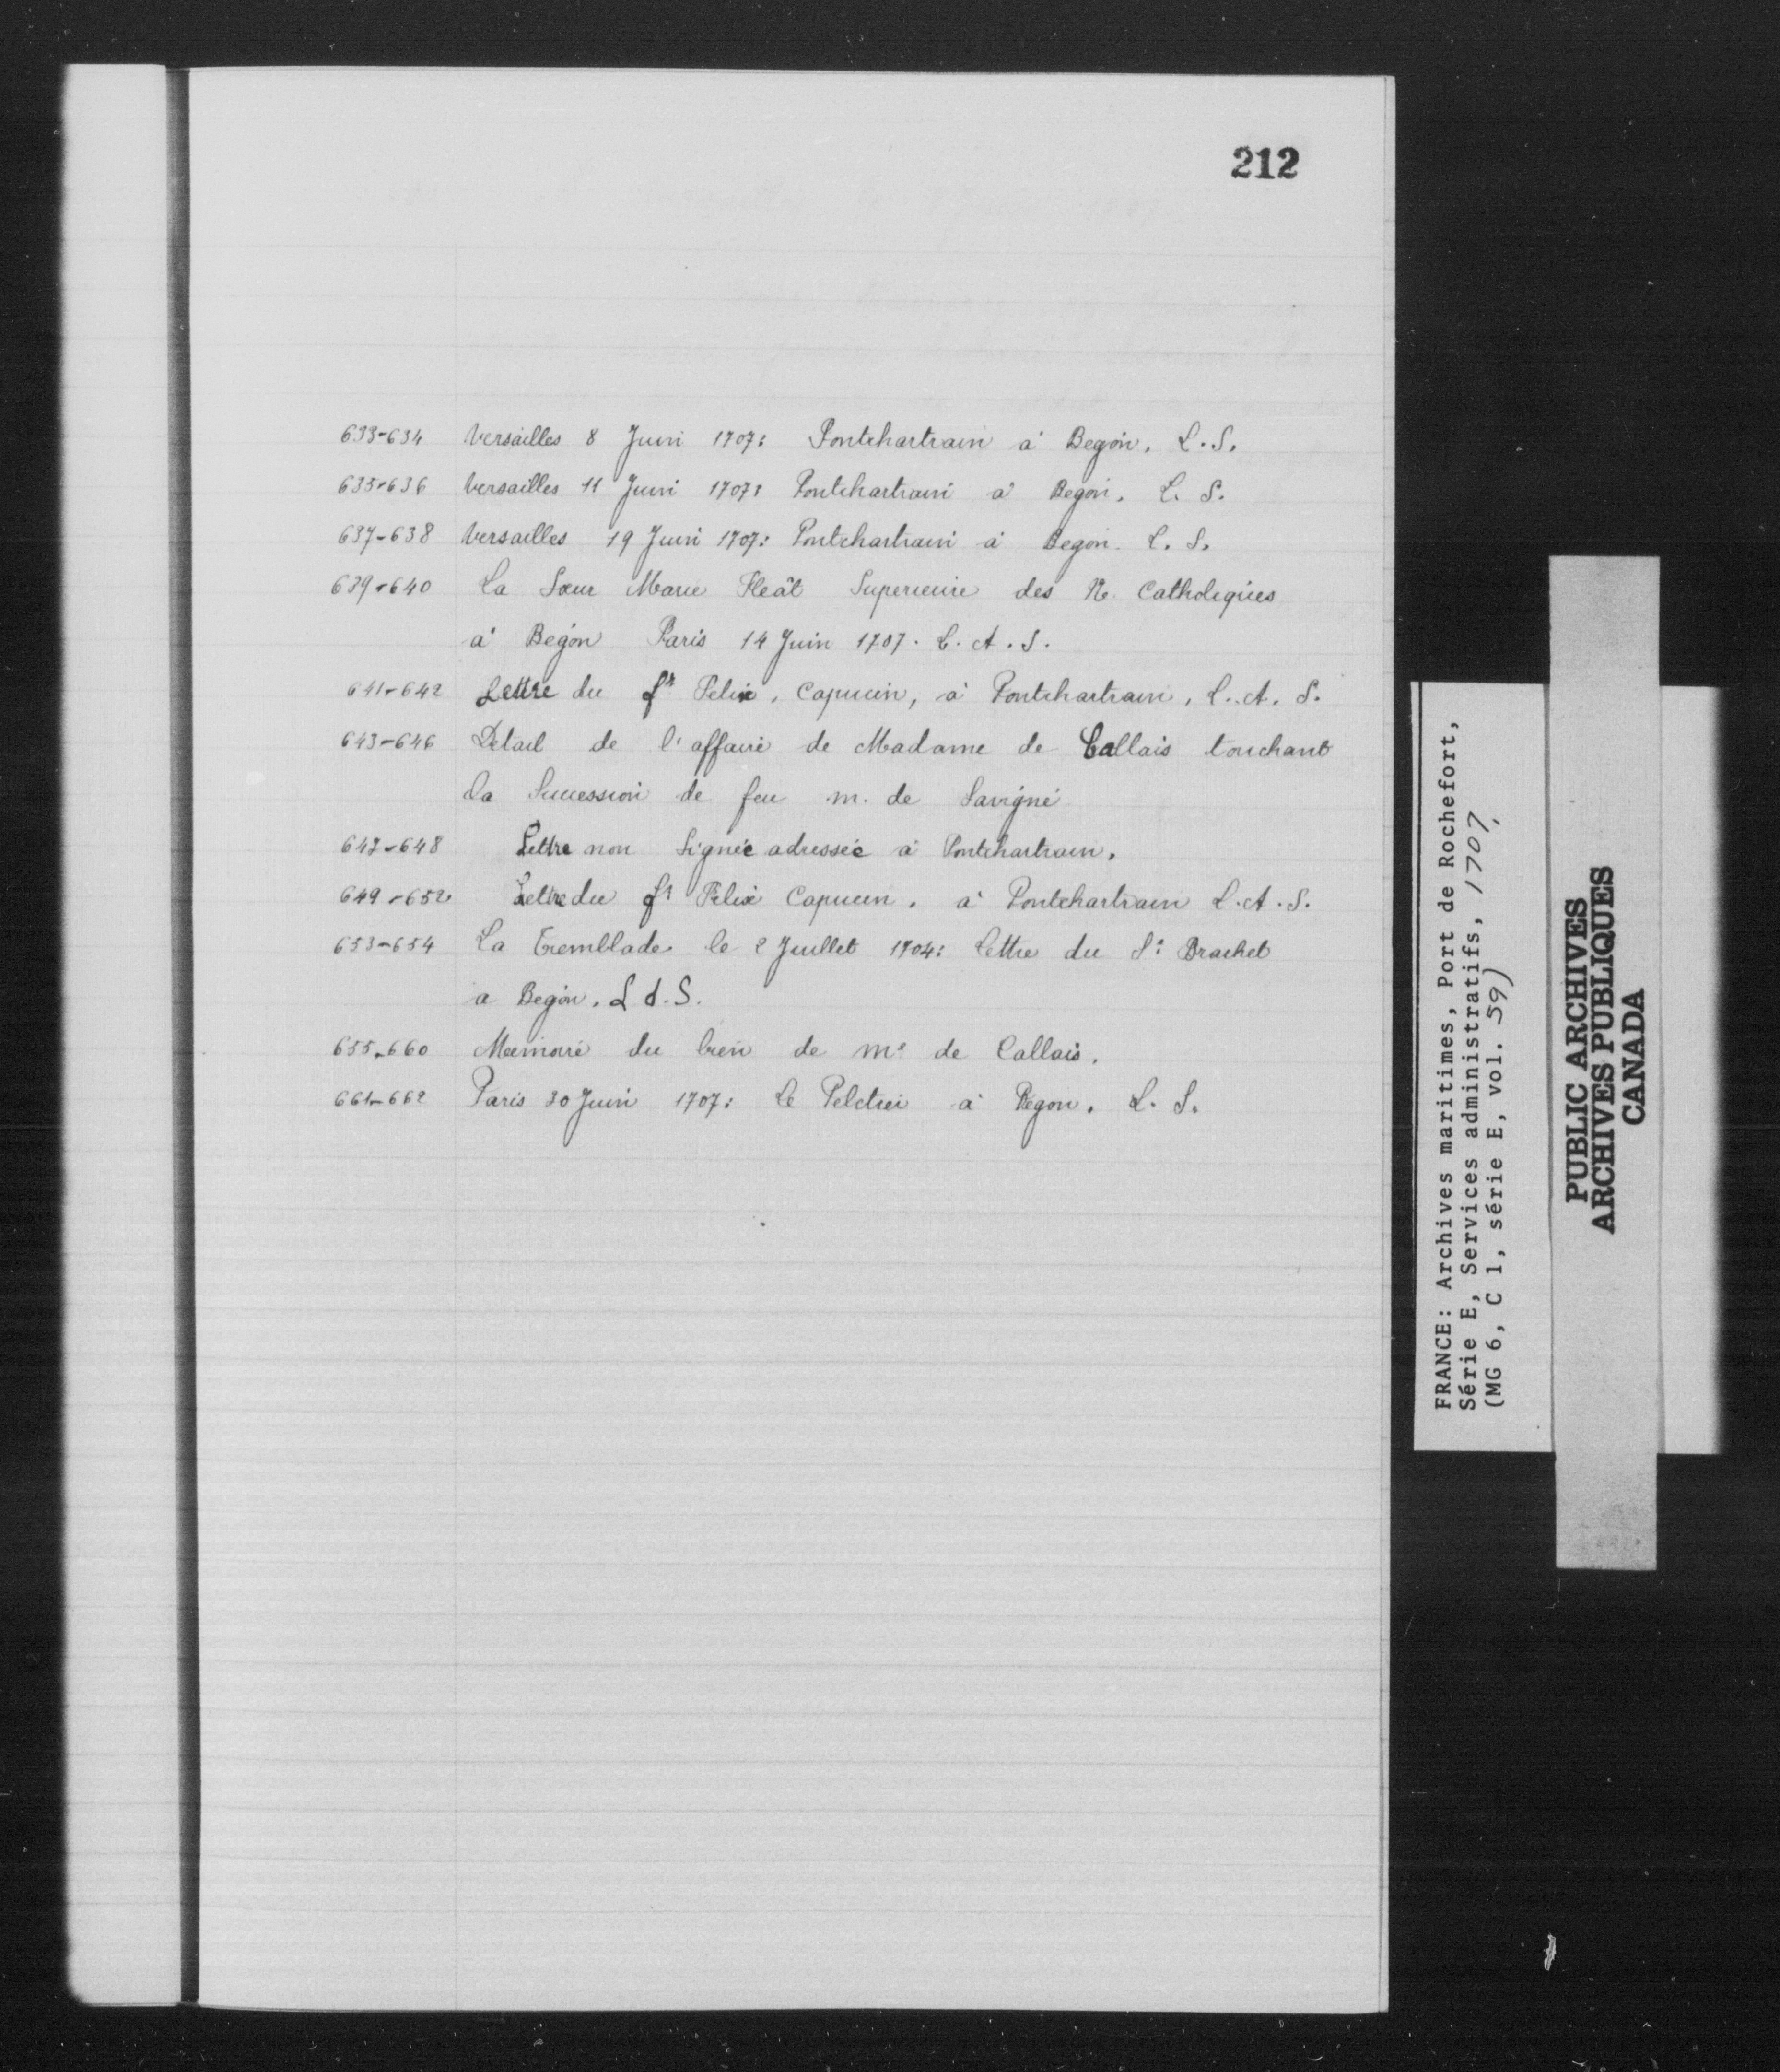 212
633-634 Versailles 8 Juin 1707: Pontchartrain à Begon. L.S.
635-636 Versailles 11 Juin 1707: Pontchartrain à Begon. L. S.
637-638 Versailles 19 Juin 1707: Pontchartrain à Begon. L. S.
639-640 La Sœur Marie Superieure des N. Catholiques
à Begon Paris 14 Juin 1707. L. A. S.
641-642 Lettre du fr Felix, Capucin, à Pontchartrain, L. A. S.
643-646 Detail de l'affaire de Madame de Callais touchant
la Succession de feu m. de Savigné
647-648 Lettre non Signée adressée à Pontchartrain.
649-652 Lettre du fr Felix Capucin, à Pontchartrain L.A.S.
653-654 La Tremblade le 2 Juillet 1704: Lettre du Sr Brachet
a Begon. L A. S.
655-660 Memoire du bien de Me de Callais.
661-662 Paris 30 Juin 1707: Le Peletier à Begon. L. S.
FRANCE: Archives maritimes, Port de Rochefort,
Série E, Services administratifs, 1707,
(MG 6, C 1, série E, vol. 59)
PUBLIC ARCHIVES
ARCHIVES PUBLIQUES
CANADA